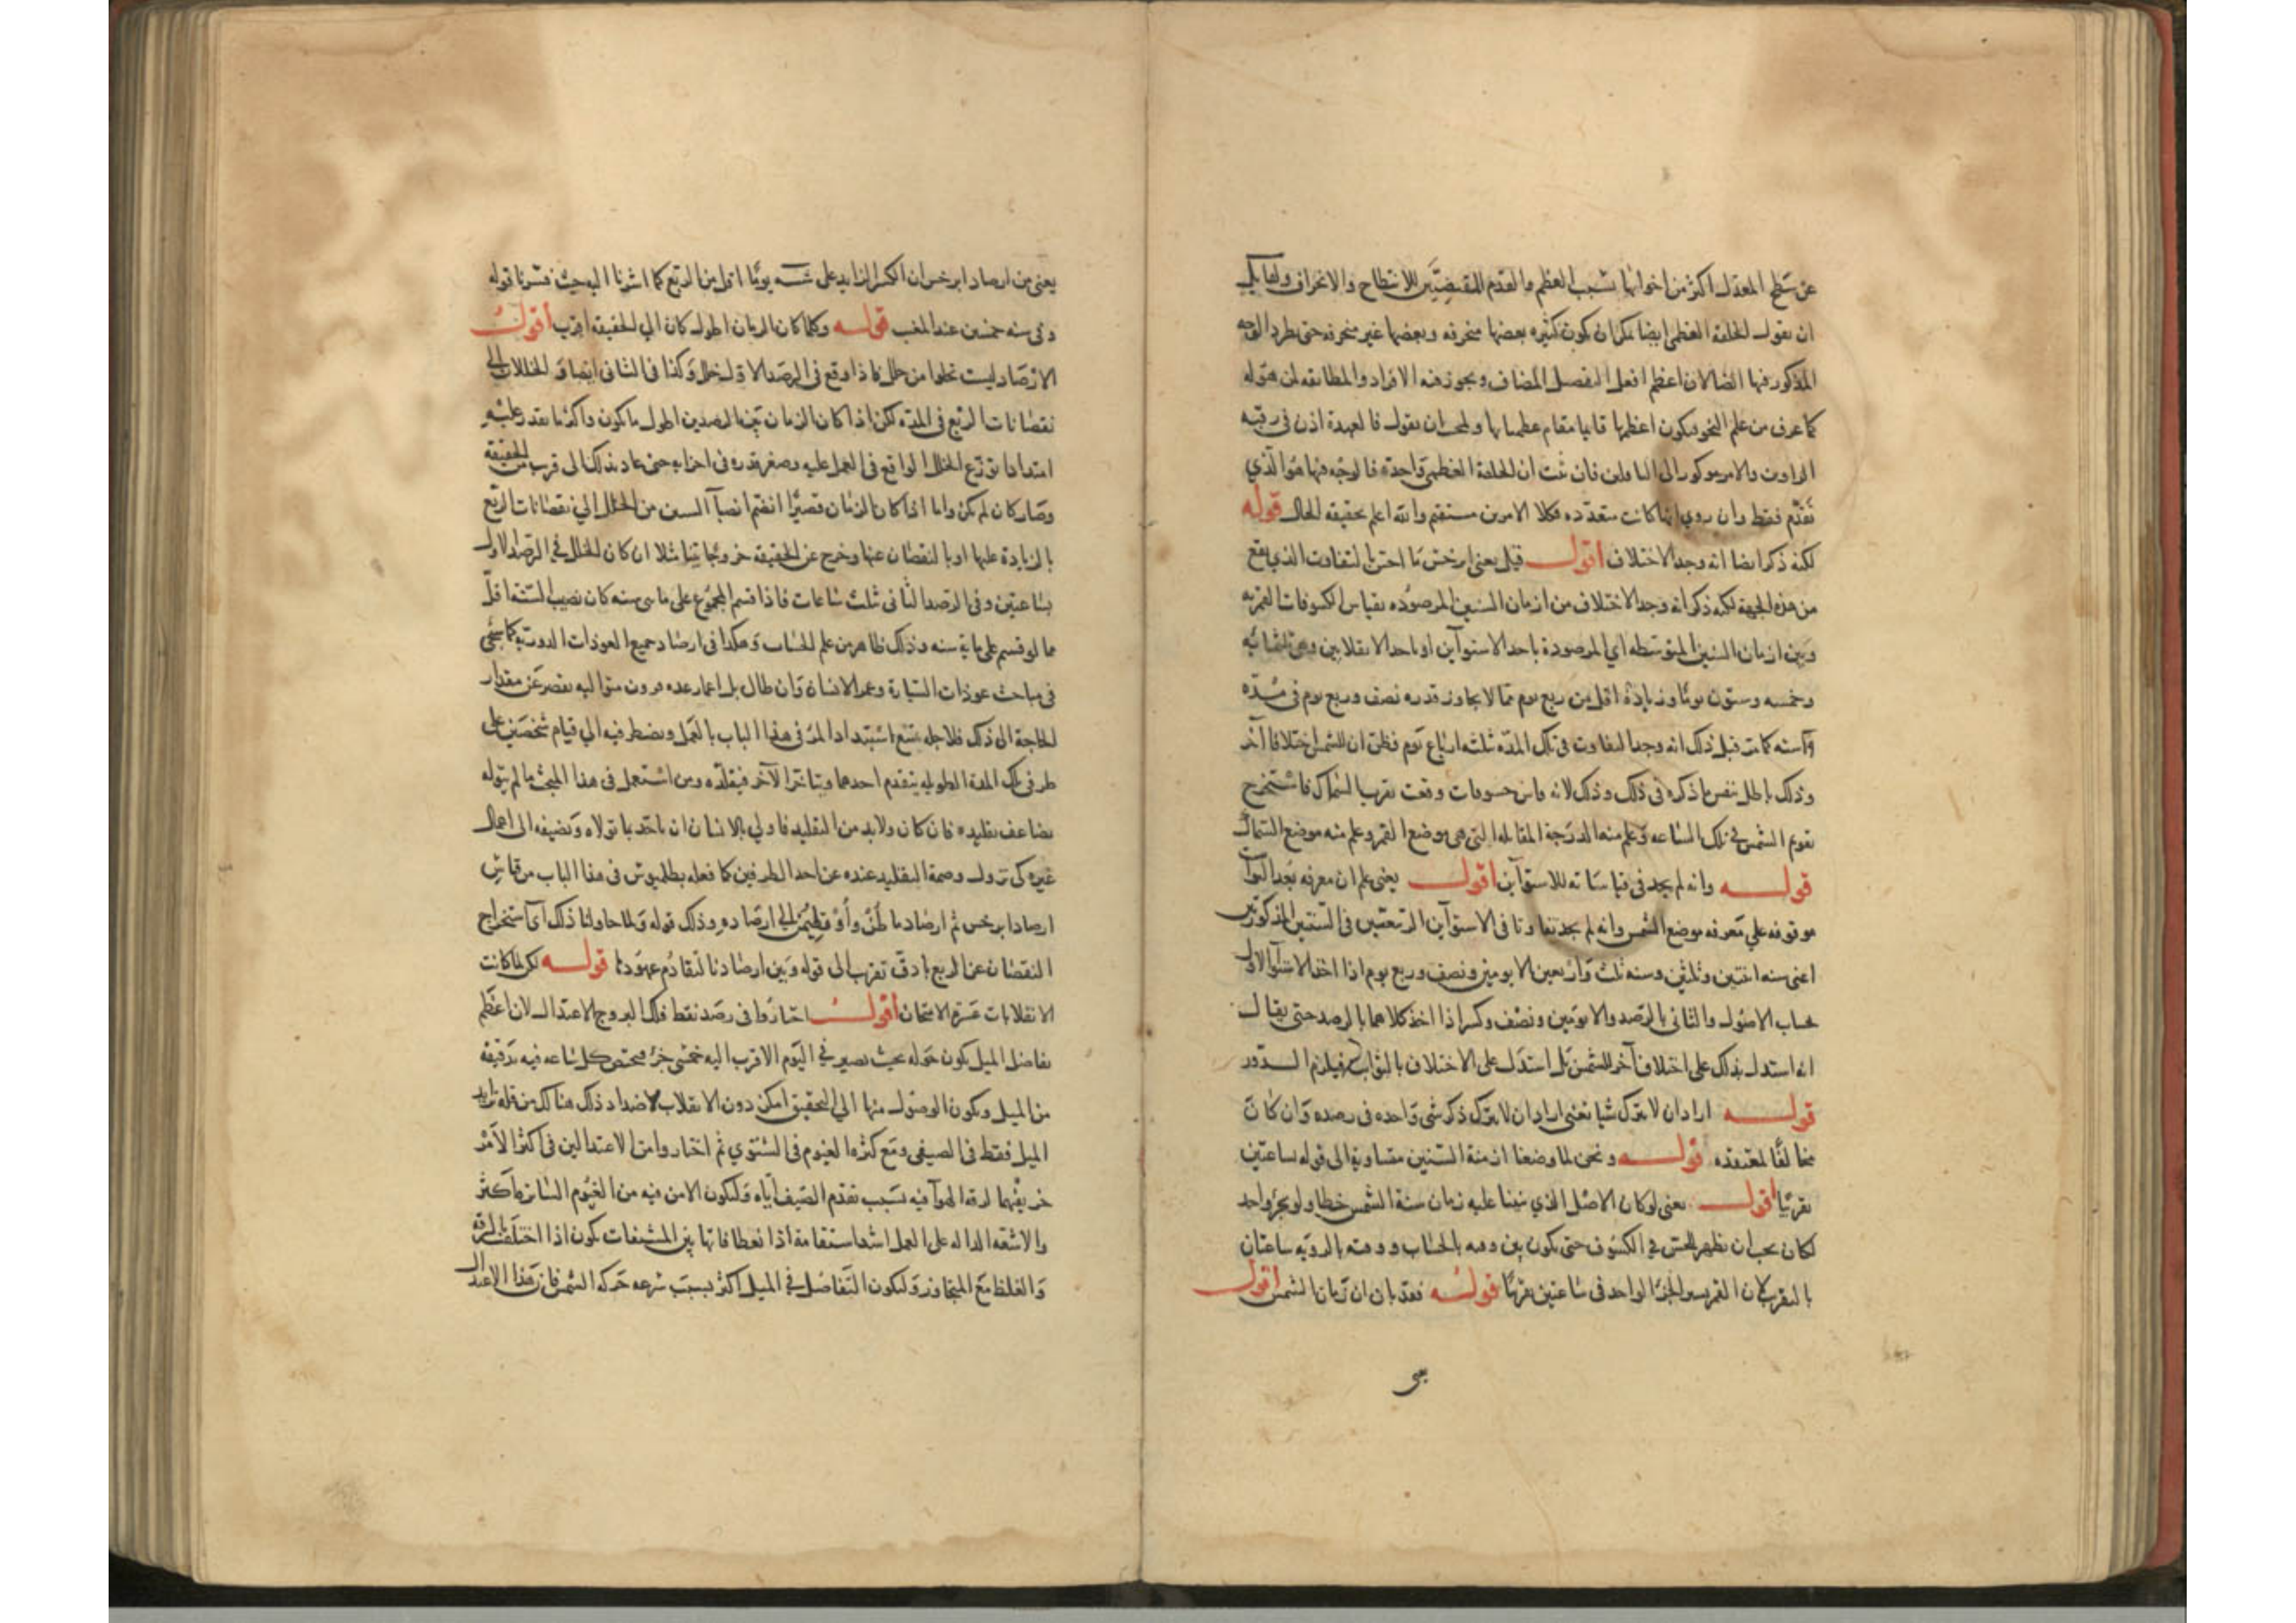 عن سطح المعدل اكثر من اخواتها بسبب العظم والقدم المقتضيين للانبطاح والانحراف ولقايل
ان يقول الحلقة العظمى ايضا يمكن ان يكون كثيره بعضها منحرفه وبعضها غير منحرفه حتى يطرد الوجه
المذكور فيها ايضا لان اعظم افعل التفصيل المضاف ويجوز فيه الافراد والمطابقه لمن هو له
كما عرف من علم النحو فيكون اعظمها قايما مقام عظمياتها ولمجيب ان يقول فالعهدة اذن في رقبة
الراوين والامر موكور الى الناقلين فان ثبت ان الحلقة العظمى واحدة فالوجه فيها هو الذي
تقدم فقط وان روي انها كانت متعدده فكلا الامرين مستقيم والله اعلم بحقيقه الحال قوله
لكنه ذكر ايضا انه وجد الاختلاف اقول قيل يعني ابرخس ما احتج بالتفاوت الذي يقع
من هذه الجهة لكنه ذكر انه وجد الاختلاف من ازمان السنين المرصوده بقياس الكسوفات القمريه
وبين ازمان السنين المتوسطه اي المرصودة باحد الاستوآين او باحد الانقلابين وهي ثلثمايه
وخمسه وستون يوما وزيادة اقل من ربع يوم مما لا يجاوز قدره نصف وربع يوم في مده
وآسنه كانت قبل ذلك انه وجد التفاوت في تلك المده ثلثه ارباع يوم فظن ان للشمس اختلافا آخر
وذلك باطل بنفس ما ذكره في ذلك وذلك لانه قاس خسوفات وقعت بقرب السماك فاستخرج
تقويم الشمس في تلك الساعه وعلم منه الدرجة المقابله التي هي موضع القمر وعلم منه موضع السماك
قوله وانه لم يجد في قياساته للاستوآين اقول يعني علم ان معرفه بعد الثوابت
موقوفه على معرفه موضع الشمس وانه لم يجد تفاوتا في الاستوآين الربيعيين في السنتين المذكورتين
اعني سنه اثنتين وثلثين وسنه ثلث واربعين الا يومين ونصف وربع يوم اذا اخذ الاستوآ الاول
بحساب الاصول والثاني بالرصد والا يومين ونصف وكسرا اذا اخذ كلاهما بالرصد حتى يقال
انه استدل بذلك على اختلاف آخر للشمس بل استدل على الاختلاف بالثوابت فيلزم الدور
قوله اراد ان لا يترك شيا يعني اراد ان لا يترك ذكر شي واحده في رصده وان كان
مخالفا لمعتقده قوله ونحن لما وضعنا ازمنة السنين متساوية الى قوله ساعتين
تقريبا اقول يعني لو كان الاصل الذي بنينا عليه زمان سنة الشمس خطا ولو بجزو واحد
لكان يجب ان يظهر للحس في الكسوف حتى يكون بين وقته بالحساب ووقته بالرويه ساعتان
بالتقريب لان القمر يسير الجزؤ الواحد في ساعتين تقريبا قوله فقد بان ان زمان الشمس اقول
يعنى
يعني من ارصاد ابرخس ان الكسر الزايد على شسه يوما اقل من الربع كما اشرنا اليه حيث فسرنا قوله
وفي سنه خمسين عند المغيب قوله وكلما كان الزمان اطول كان الي الحقيقه اقرب اقول
الارصاد ليست تخلوا من خلل فاذا وقع في الرصد الاول خلل وكذا في الثاني انضاف الخللان الى
نقصانات الربع في المدة لكن اذا كان الزمان بين الرصدين اطول ما يكون واكثر ما يقدر عليه
امتدادا توزع الخلل الواقع في العمل عليه وصغر قدره في اجزايه حتى عاد بذلك الى قرب من الحقيقة
وصار كان لم يكن واما اذا كان الزمان قصيرا انضم انصبآ السنين من الخلل الي نقصانات الربع
بالزيادة عليها او بالنقصان عنها وخرج عن الحقيقه خروجا بينا مثلا ان كان الخلل في الرصد الاول
ساعتين وفي الرصد الثاني ثلث ساعات فاذا قسم المجموع على مايتى سنه كان نصيب السنة اقل
مما لو قسم على ماية سنه وذلك ظاهر من علم الحساب وهكذا في ارصاد جميع العوذات الدورية كما سيجي
في مباحث عوذات السيارة وعمر الانسان وان طال بل اعمار عده قرون متواليه يقصر عن مقدار
الحاجة الى ذلك فلاجله يمتنع استبداد المر في هذا الباب بالعمل ويضطر فيه الي قيام شخصين على
طرفي تلك المدة الطويله يتقدم احدهما ويتاخر الآخر فيقلده ومن استعمل في هذا المبحث ما لم يتوله
تضاعف تقليده فان كان ولابد من التقليد فاولي بالانسان ان ياخذ ما تولاه ويضيفه الى اعمال
غيره كى تزول وصمة التقليد عنده عن احد الطرفين كما فعله بطلميوس في هذا الباب من قياس
ارصاد ابرخس ثم ارصاد ماطن واوقطيمن الى ارصاده وذلك قوله ولما حاولنا ذلك اى استخراج
النقصان عن الربع بادق تقريب الى قوله وبين ارصادنا لتقادم عهودها قوله لكن لما كانت
الانقلابات عسره الامتحان اقول اختاروا في رصد نقط فلك البروج الاعتدال لان اعظم
تفاضل الميل يكون حوله بحيث يصير في اليوم الاقرب اليه خمسي جزؤ فيختص كل ساعه فيه بدقيقه
من الميل ويكون الوصول منها الي التحقيق امكن دون الانقلاب لاضداد ذلك هنالك من قله تزايد
الميل فقط في الصيفي ومع كثره الغيوم في الشتوي ثم اختاروا من الاعتدالين في اكثر الامر
خريفيهما لرقه الهوآ فيه بسبب تقدم الصيف اياه وليكون الامن فيه من الغيوم الساتره اكثر
والاشعه الداله على العمل اشد استقامة اذا نعطافاتها بين المشفات يكون اذا اختلف بالرقه
والغلظ مع المتجاوز وليكون التفاضل في الميل اكثر بسبب سرعه حركه الشمس فان هذا الاعتدال